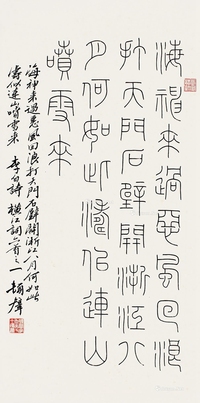 海神來過惡風回浪
打天門石壁開浙江八
月何如此濤似連山
噴雪來
海神来過惡風回浪打天門石壁開浙江八月何如此
濤似連山噴雪来 李白詩 橫江詞六首之一